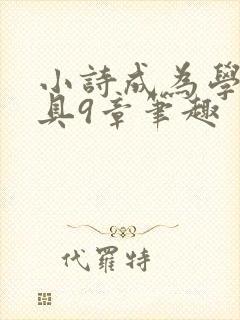 小詩成為學
具9章筆趣
代羅特